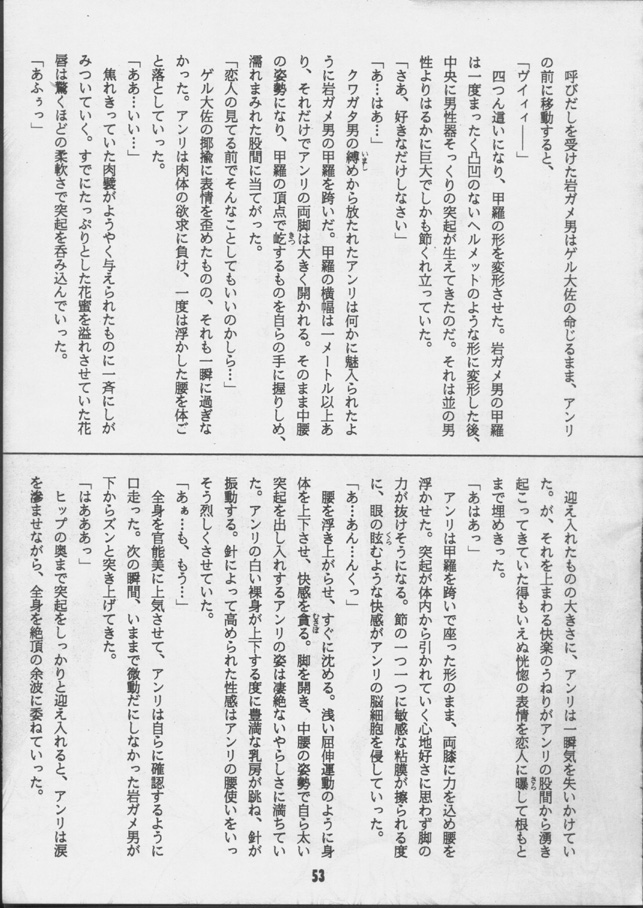 呼びだしを受けた岩ガメ男はゲル大佐の命じるまま、アンリ
の前に移動すると、
「ヴイィィ――」
四つん這いになり、甲羅の形を変形させた。岩ガメ男の甲羅
は一度まったく凸凹のないヘルメットのような形に変形した後、
中央に男性器そっくりの突起が生えてきたのだ。それは並の男
性よりはるかに巨大でしかも節くれ立っていた。
「さあ、好きなだけしなさい」
「あ…はあ…」
クワガタ男の縛めから放たれたアンリは何かに魅入られたよ
うに岩ガメ男の甲羅を跨いだ。甲羅の横幅は一メートル以上あ
り、それだけでアンリの両脚は大きく開かれる。そのまま中腰
の姿勢になり、甲羅の頂点で屹するものを自らの手に握りしめ、
濡れまみれた股間に当てがった。
「恋人の見てる前でそんなことしてもいいのかしら…」
ゲル大佐の揶揄に表情を歪めたものの、それも一瞬に過ぎな
かった。アンリは肉体の欲求に負け、一度は浮かした腰を体ご
と落としていった。
「ああ…いい…」
焦れきっていた肉襞がようやく与えられたものに一斉にしが
みついていく。すでにたっぷりとした花蜜を溢れさせていた花
唇は驚くほどの柔軟さで突起を呑み込んでいった。
「あふぅっ」
迎え入れたものの大きさに、アンリは一瞬気を失いかけてい
た。が、それを上まわる快楽のうねりがアンリの股間から湧き
起こってきていた得もいえぬ恍惚の表情を恋人に曝して根もと
まで埋めきった。
「あはあっ」
アンリは甲羅を跨いで座った形のまま、両膝に力を込め腰を
浮かせた。突起が体内から引かれていく心地好さに思わず脚の
力が抜けそうになる。節の一つ一つに敏感な粘膜が擦られる度
に、眼の眩むような快感がアンリの脳細胞を侵していった。
「あ…あん…んくっ」
腰を浮き上がらせ、すぐに沈める。浅い屈伸運動のように身
体を上下させ、快感を貪る。脚を開き、中腰の姿勢で自ら太い
突起を出し入れするアンリの姿は凄絶ないやらしさに満ちてい
た。アンリの白い裸身が上下する度に豊満な乳房が跳ね、針が
振動する。針によって高められた性感はアンリの腰使いをいっ
そう烈しくさせていた。
「あぁ…も、もう…」
全身を官能美に上気させて、アンリは自らに確認するように
口走った。次の瞬間、いままで微動だにしなかった岩ガメ男が
下からズンと突き上げてきた。
「はあああっ」
ヒップの奥まで突起をしっかりと迎え入れると、アンリは涙
を滲ませながら、全身を絶頂の余波に委ねていった。
53